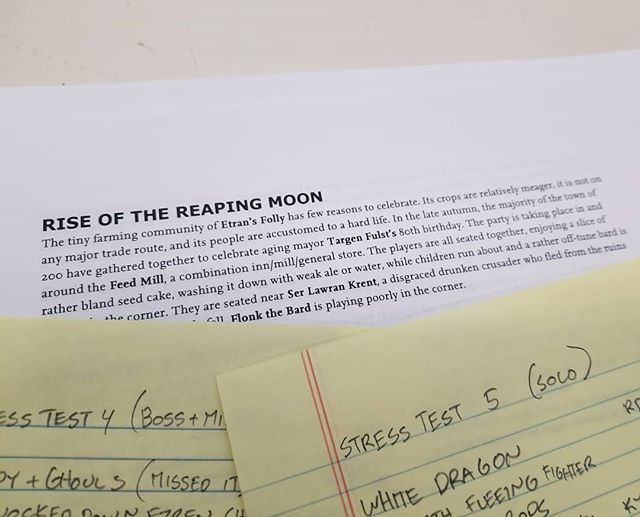 RISE OF THE REAPING MOON
The tiny farming community of Etran's Folly has few reasons to celebrate. Its crops are relatively meager, it is not on
any major trade route, and its people are accustomed to a hard life. In the late autumn, the majority of the town of
200 have gathered together to celebrate aging mayor Targen Fulst's 80th birthday. The party is taking place in and
around the Feed Mill, a combination inn/mill/general store. The players are all seated together, enjoying a slice of
rather bland seed cake, washing it down with weak ale or water, while children run about and a rather off-tune bard is
the corner. They are seated near Ser Lawran Krent, a disgraced drunken crusader who fled from the ruins
Flonk the Bard is playing poorly in the corner.
ESS TEST 4 (BOSS + MI
PY + GHOULS (MISSED IT
OCKED DOWN EZREN
STRESS TEST 5 (SOLO)
WHITE DRAGON
FLEEING FIGHTER